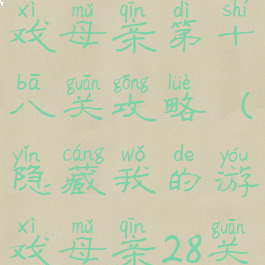 xì mǔ qīn dì shí
戏母亲第十
bā guān gōng lüè
八关攻略(
yǐn cáng wǒ de yóu
隐藏我的游
xì mǔ qīn guān
戏母亲28关